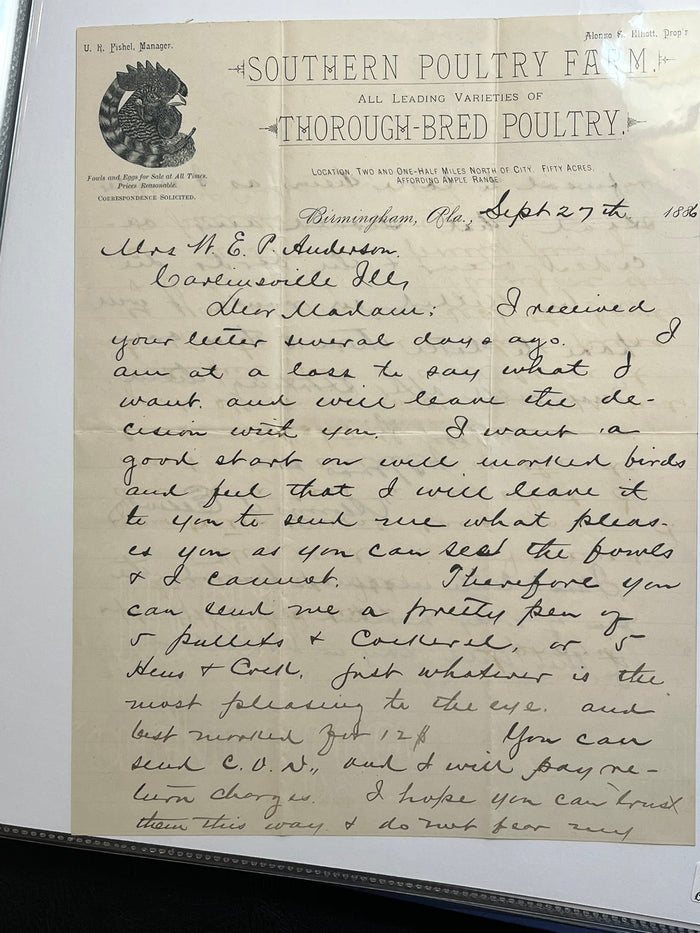 U. R. Fishel, Manager.
Alonzo S. Elliott, Prop'r
SOUTHERN POULTRY FARM.
ALL LEADING VARIETIES OF
THOROUGH-BRED POULTRY.
Fowls and Eggs for Sale at All Times.
Prices Reasonable.
CORRESPONDENCE SOLICITED.
LOCATION, TWO AND ONE-HALF MILES NORTH OF CITY. FIFTY ACRES,
AFFORDING AMPLE RANGE.
Birmingham, Ala., Sept 27th 1886
Mrs W. E. P. Anderson.
Carlinsville Ills
Dear Madam: I received
your letter several days ago. I
am at a loss to say what I
want. and will leave the de-
cision with you. I want a
good start on well marked birds
and feel that I will leave it
to you to send me what pleas-
es you as you can see the fowls
& I cannot. Therefore you
can send me a pretty pen of
5 pullets & Cockerel, or 5
Hens & Cock, just whatever is the
most pleasing to the eye. and
best marked for 12$ You can
send C. O. D., and I will pay re-
turn charges. I hope you can trust
them this way & do not fear my